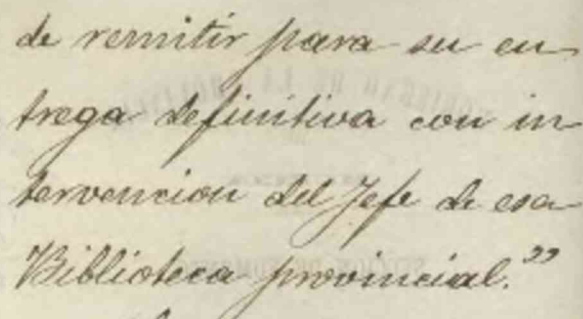 de remitir para su en
trega definitiva con in
tervencion del Jefe de esa
Biblioteca provincial."